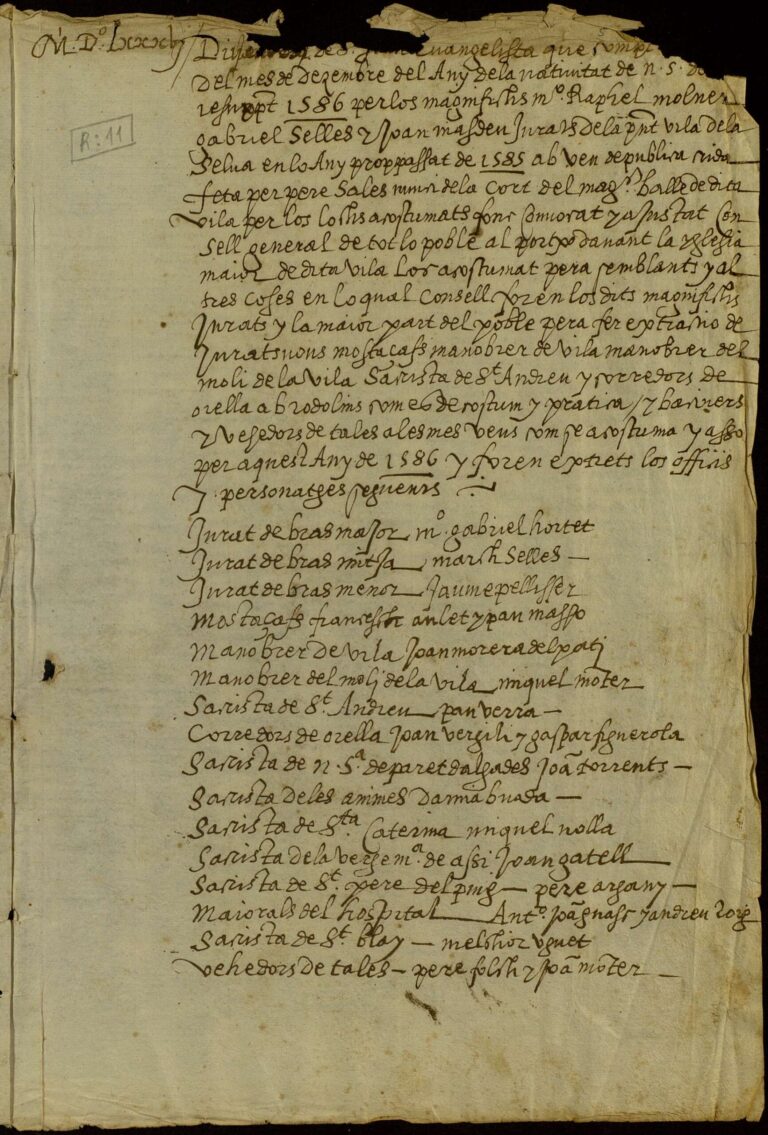 M. D.º Lxxxvj
R: 11
de S.t Evangelista que
Del mes de Dezembre del Any de la nativitat de n. s. de
1586 per los magnifichs m.º Raphel molner
gabriel Selles y Joan masdeu Jurats de la pnt vila de la
Selva en lo Any proppassat de 1585 ab veu de publica crida
feta per pere Sales nunci de la Cort del mag.ch balle de dita
vila per los lochs acostumats fonc Convocat y ajustat Con
sell general de tot lo poble al portxo davant la yglesia
maior de dita vila Loc acostumat pera semblants y al
tres Coses en lo qual Consell foren los dits magnifichs
Jurats y la maior part del poble pera fer extractio de
Jurats nous mostasafs manobrer de vila manobrer del
moli de la vila Sacrista de S.t Andreu y corredors de
orella a brodolins com es de costum y pratica / y baciners
y Vehedors de tales a les mes veus com se acostuma y asso
per aquest Any de 1586 y foren extrets los officis
y personatges seguents
Jurat de bras major m.º gabriel hortet
Jurat de bras mitja march Selles
Jurat de bras menor Jaume pellisser
mostasafs francesch aulet y pau masso
Manobrer De vila Joan morera del pati
Manobrer del moli de la vila miquel moter
Sacrista de S.t Andreu pau verra
Corredors de orella Joan vergili y gaspar figuerola
Sacrista de n. S.ª de paret dalgades Joã torrents
Sacrista de les animes Damia buada
Sacrista de S.ta Caterina miquel nolla
Sacrista de la verge m.ª de assi Joan gatell
Sacrista de S.t pere del puig pere argany
Maiorals del hospital Ant.º Joã gnasc y andreu Roig
Sacrista de S.t blay melchior uguet
vehedors de tales pere folch y Joã moter